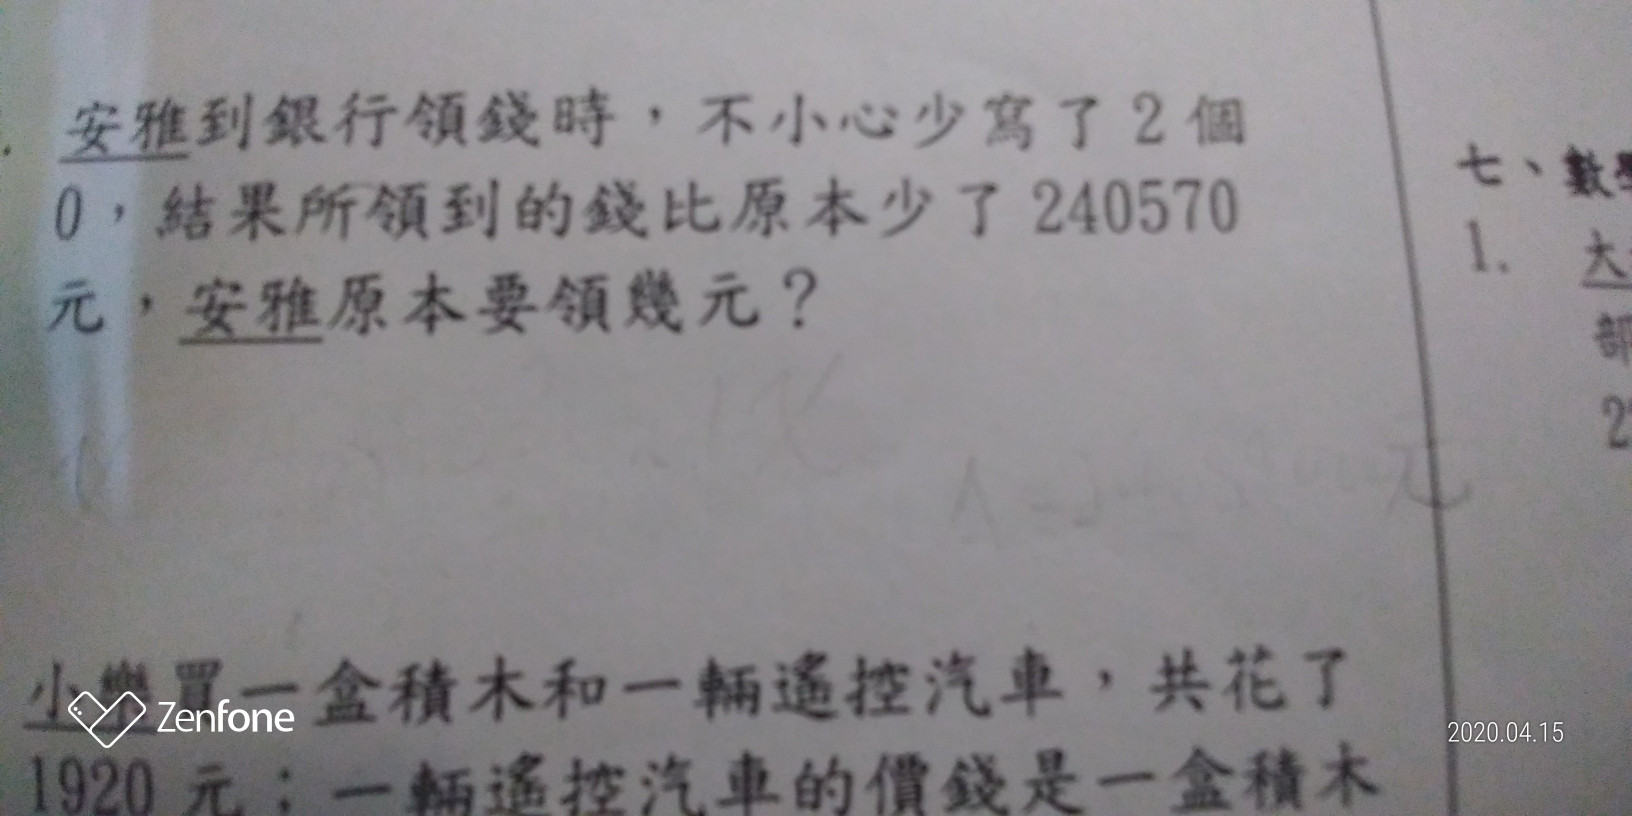 安雅到銀行領錢時，不小心少寫了2個
0，結果所領到的錢比原本少了240570
元，安雅原本要領幾元？
小樂買一盒積木和一輛遙控汽車，共花了
1920元；一輛遙控汽車的價錢是一盒積木
七、數
1. 大
部
Zenfone
2020.04.15